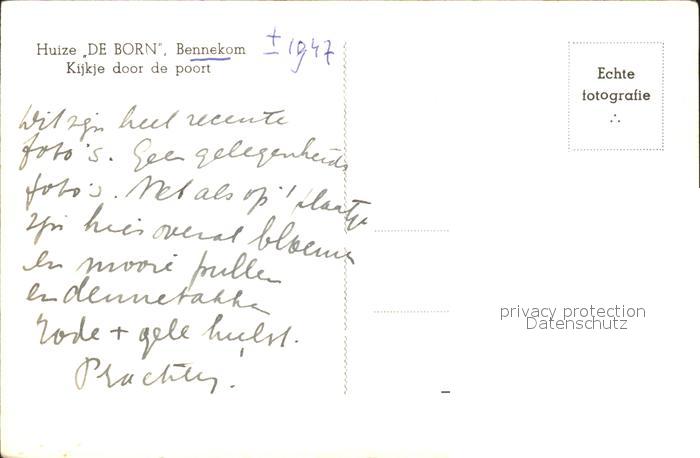 Huize „DE BORN", Bennekom
Kijkje door de poort
± 1947
Echte
fotografie
Dit zijn heel recente
foto's. Geen gelegenheids
foto's. Net als op 't plaatje
zijn hier overal bloemen
en mooie prullen
en dennetakken
rode + gele hulst.
Prachtig!
privacy protection
Datenschutz